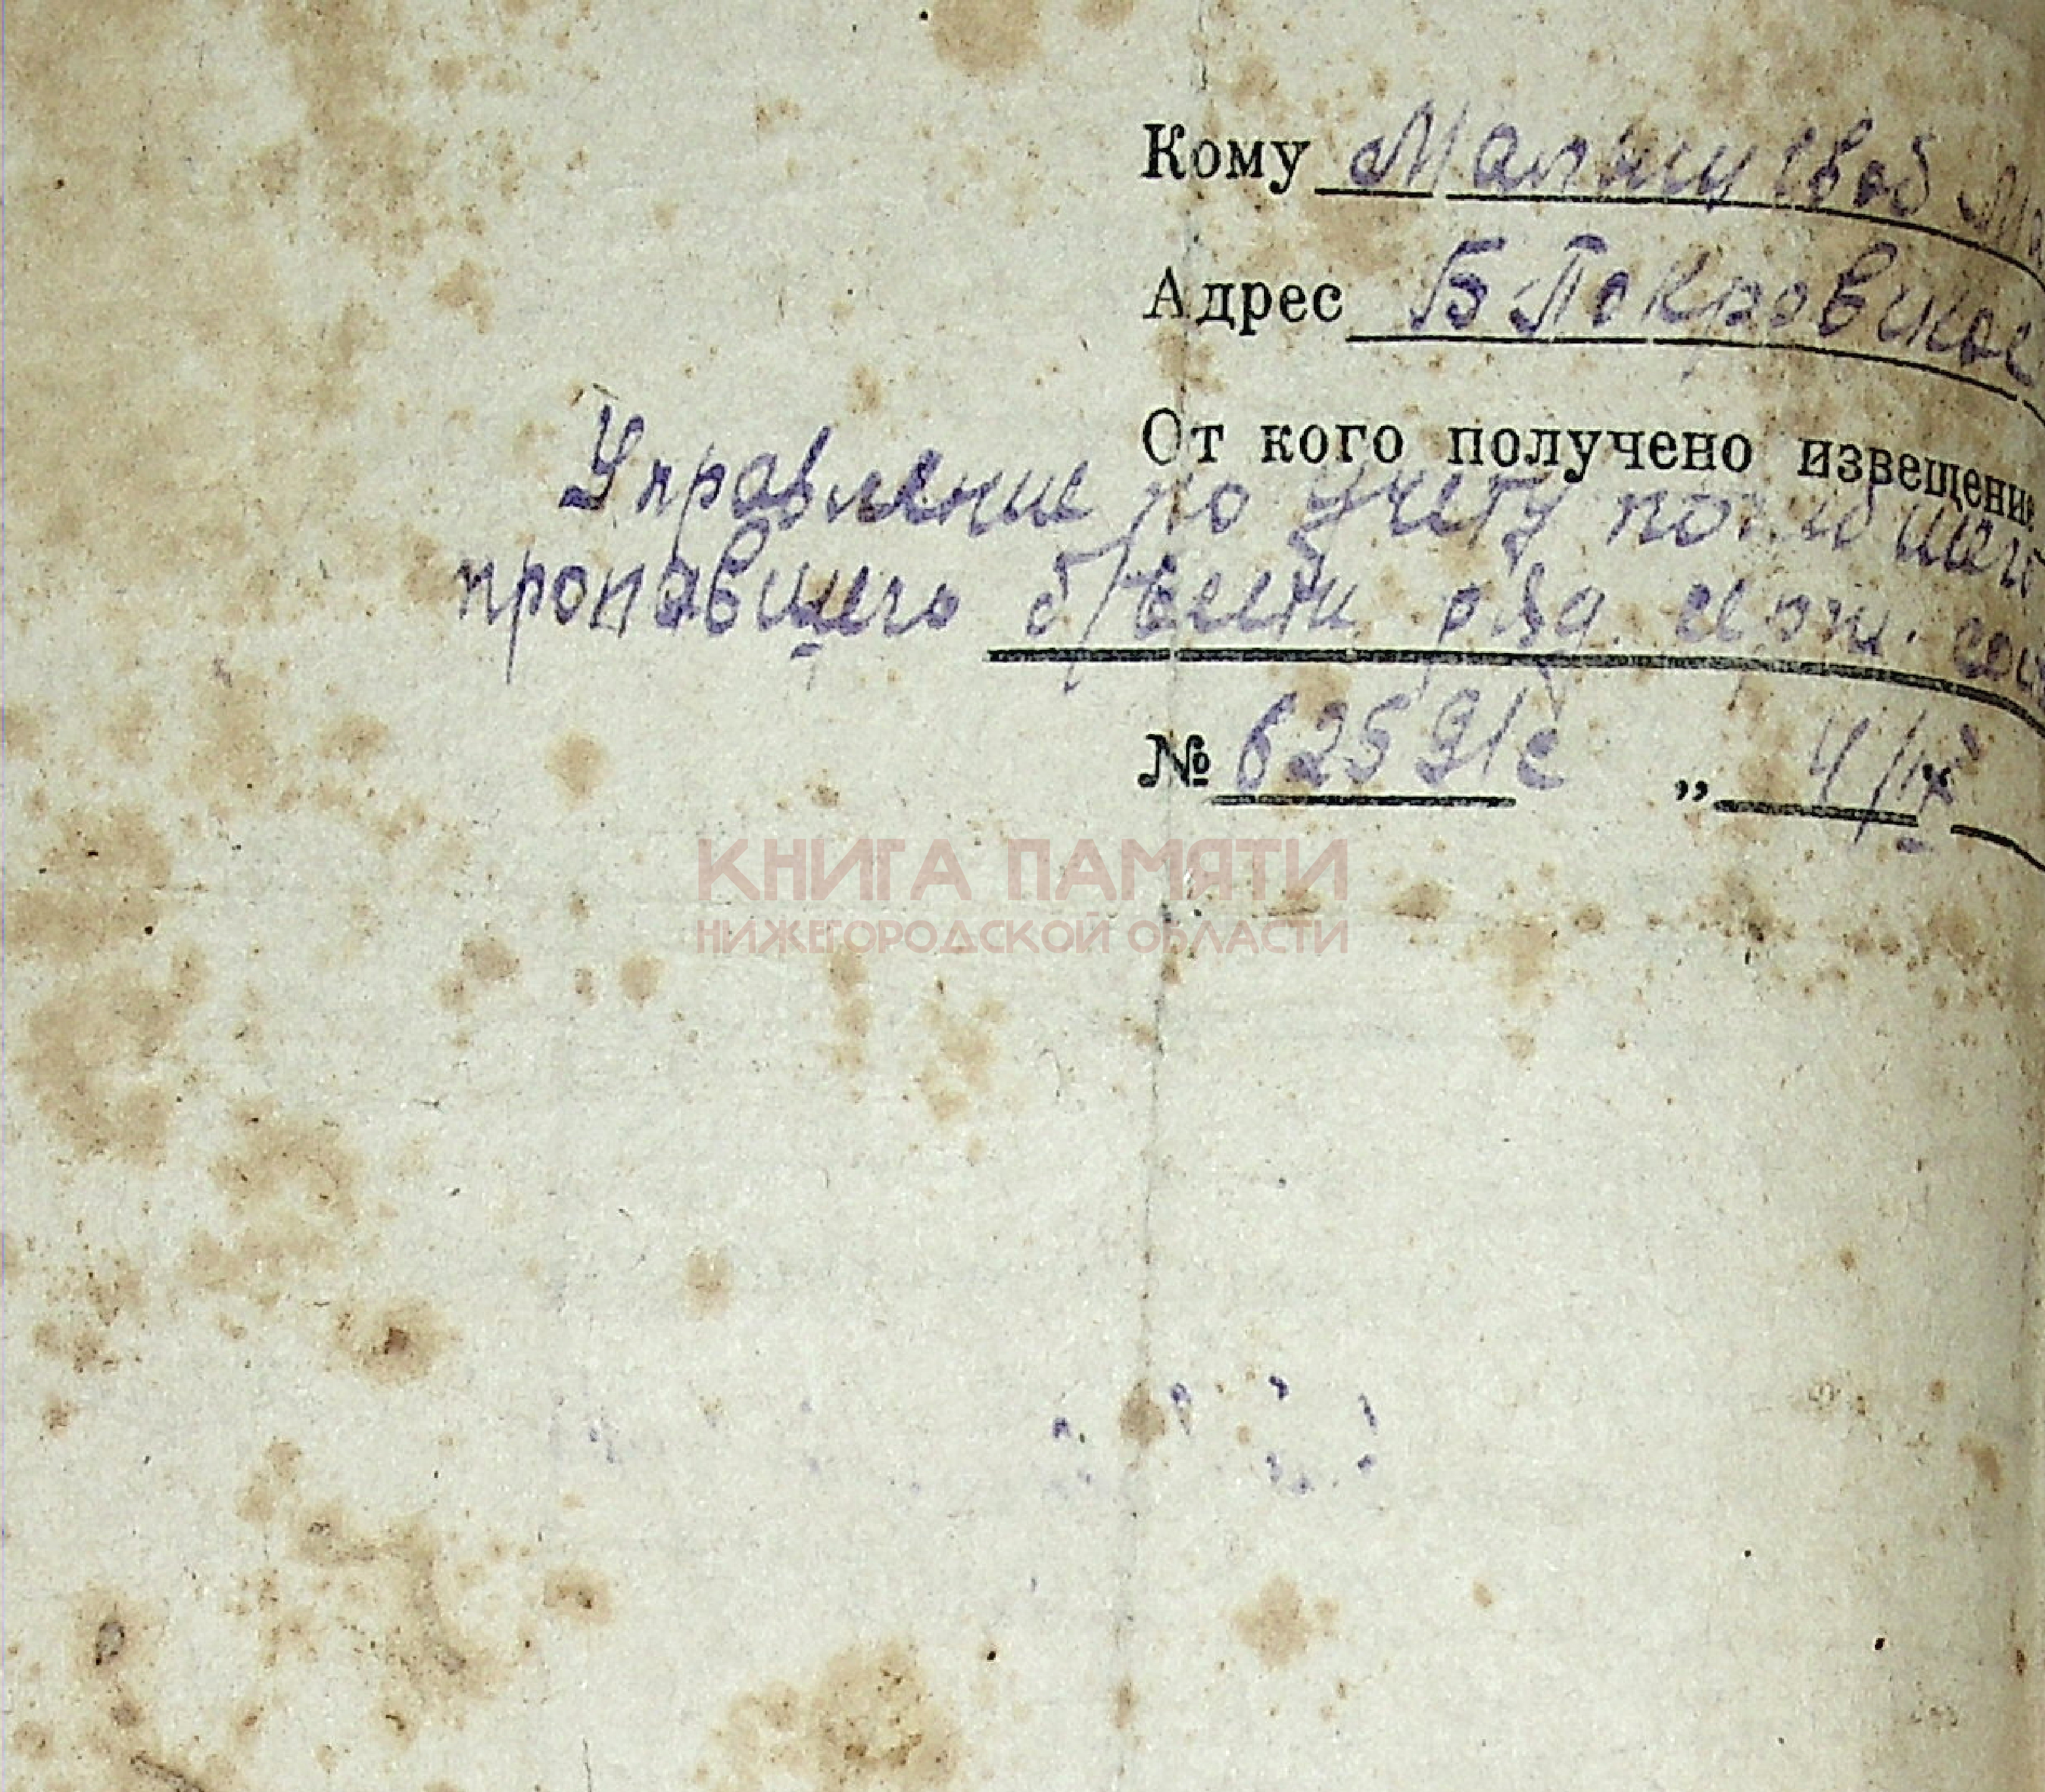 Кому Малышевой
Адрес Б Покровское
От кого получено извещение
Управление по учету погибшего
пропавшего б/вести ряд. и
№ 62591с „ 4/IX
КНИГА ПАМЯТИ
НИЖЕГОРОДСКОЙ ОБЛАСТИ